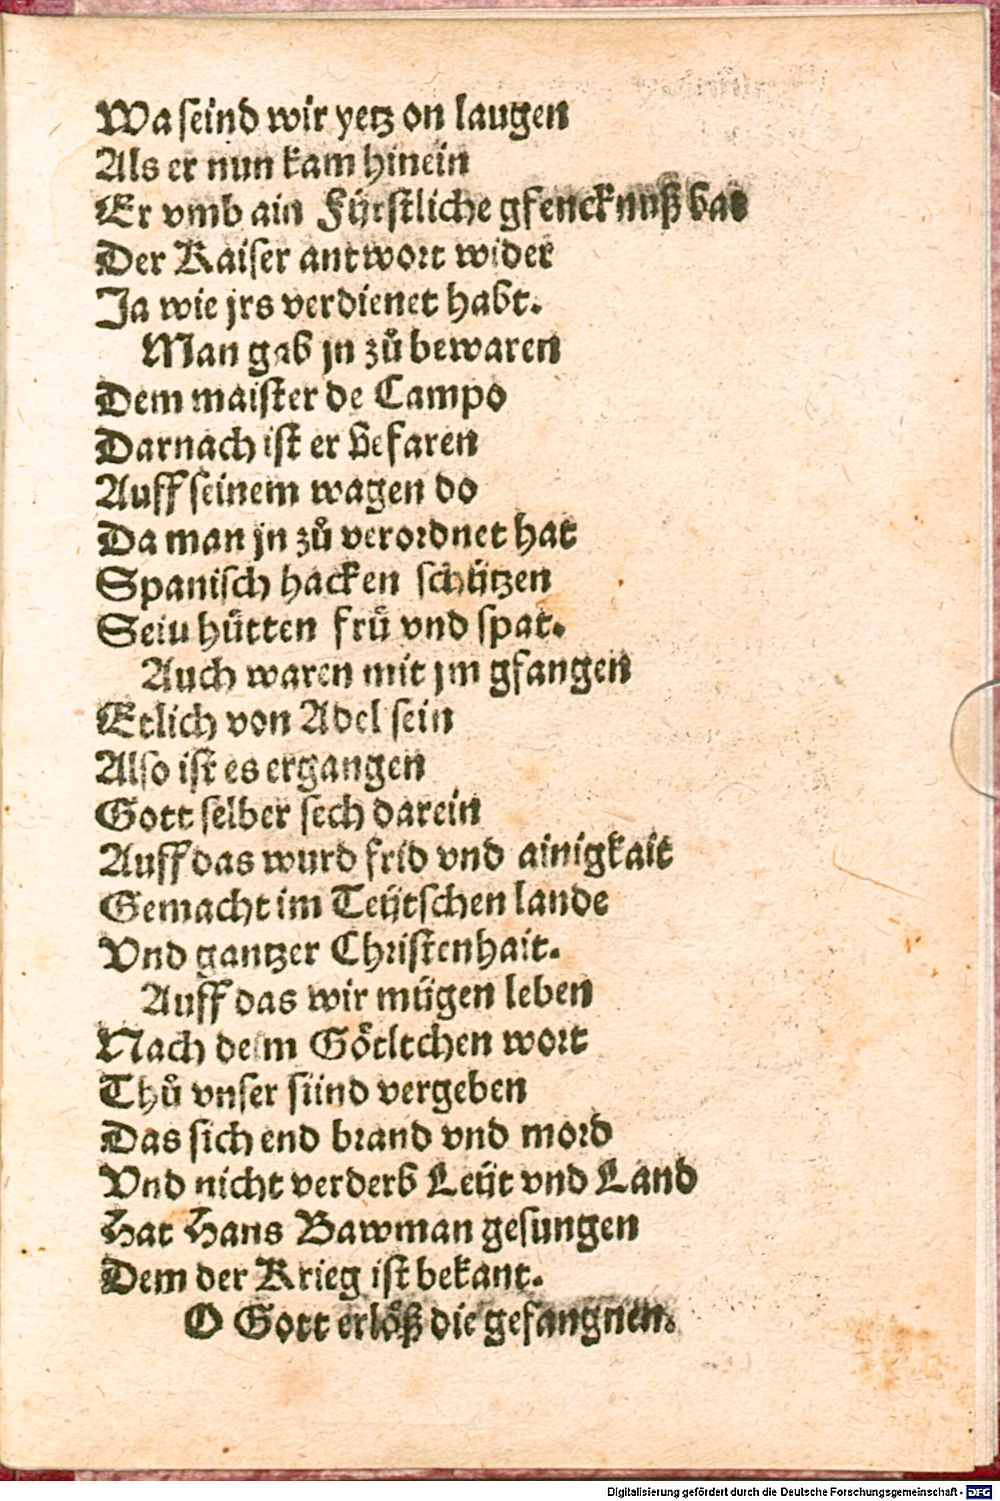 Wa seind wir yetz on laugen
Als er nun kam hinein
Er vmb ain Fürstliche gfencknuß bat
Der Kaiser antwort wider
Ja wie jrs verdienet habt.
Man gab jn zů bewaren
Dem maister de Campo
Darnach ist er gefaren
Auff seinem wagen do
Da man jn zů verordnet hat
Spanisch hacken schützen
Seiu hütten frü vnd spat.
Auch waren mit jm gfangen
Etlich von Adel sein
Also ist es ergangen
Gott selber sech darein
Auff das wurd frid vnd ainigkait
Gemacht im Teütschen lande
Vnd gantzer Christenhait.
Auff das wir mügen leben
Nach deim Götltchen wort
Thů vnser sünd vergeben
Das sich end brand vnd mord
Vnd nicht verderb Leüt vnd Land
Hat Hans Bawman gesungen
Dem der Krieg ist bekant.
O Gott erlöß die gefangnen.
Digitalisierung gefördert durch die Deutsche Forschungsgemeinschaft - DFG